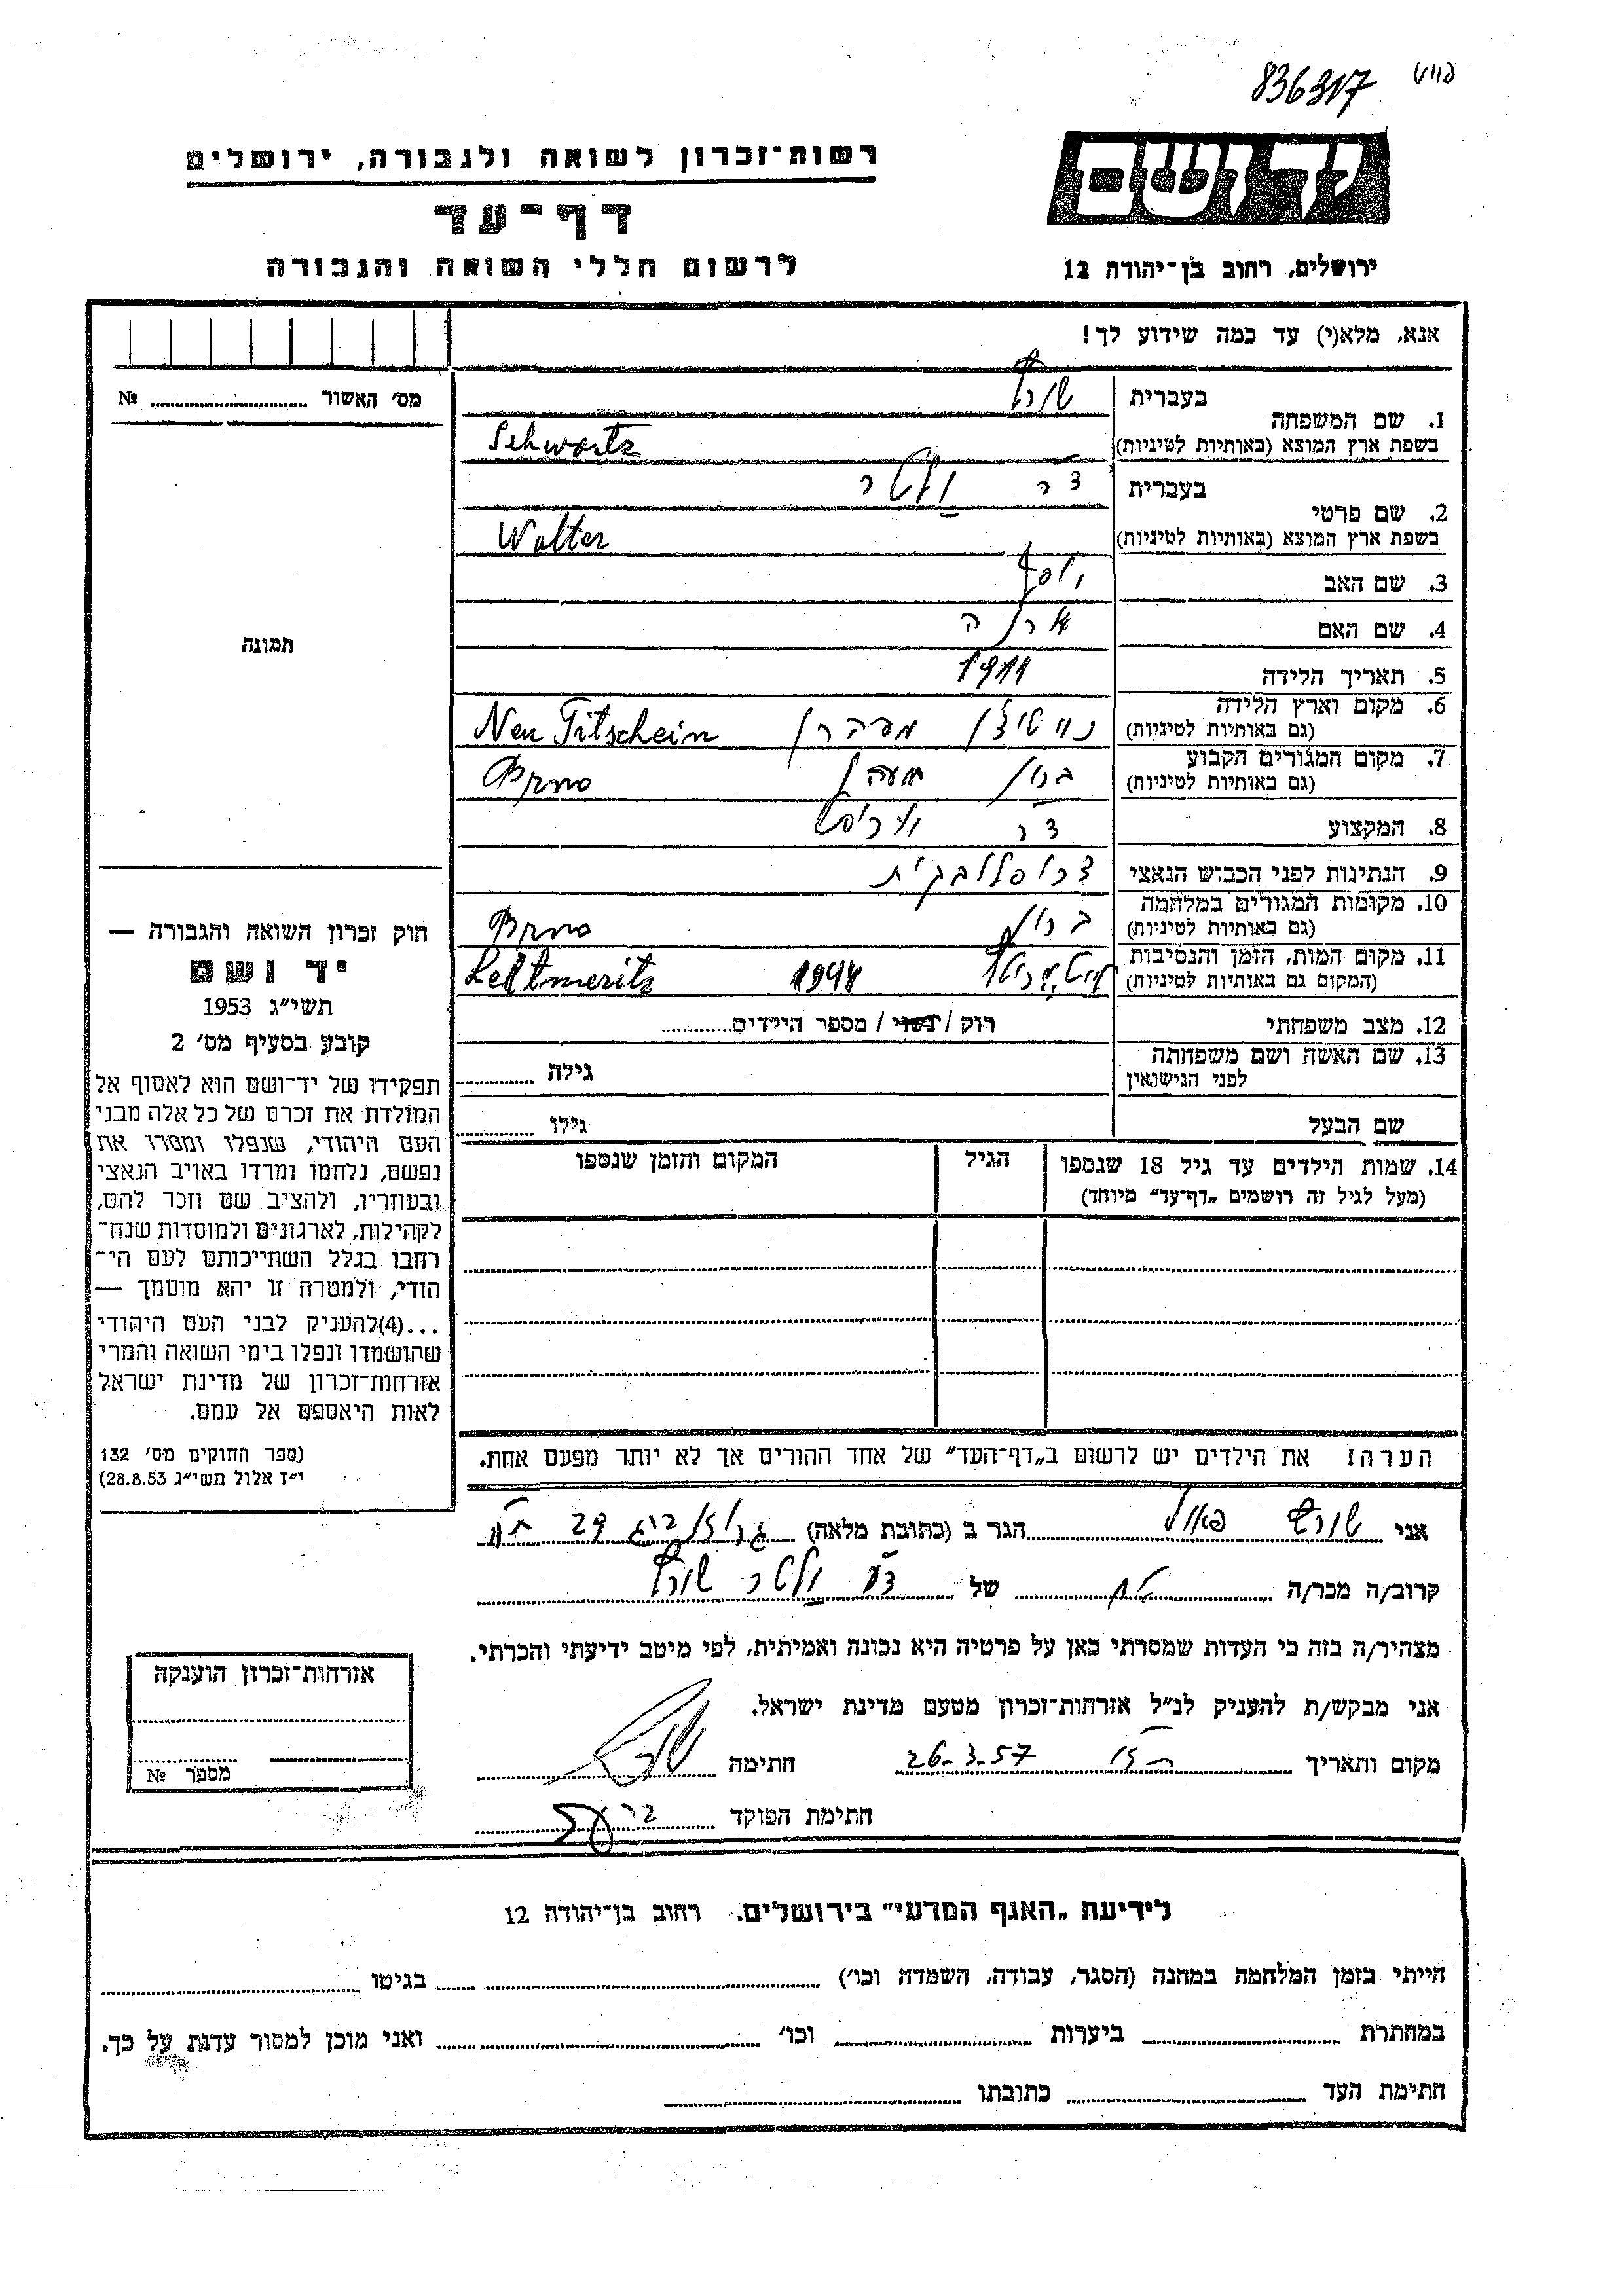 836317
רשות־זכרון לשואה ולגבורה, ירושלים
יד ושם
דף־עד
לרשום חללי השואה והגבורה
ירושלים, רחוב בן־יהודה 12
אנא, מלא(י) עד כמה שידוע לך!
מס׳ האשור № 
1. שם המשפחה בעברית שורץ
בשפת ארץ המוצא (באותיות לטיניות) Schwartz
2. שם פרטי בעברית ד״ר ולטר
בשפת ארץ המוצא (באותיות לטיניות) Walter
3. שם האב יוסף
4. שם האם
תמונה
5. תאריך הלידה 1911
6. מקום וארץ הלידה
(גם באותיות לטיניות) Neu Titschein
7. מקום המגורים הקבוע
(גם באותיות לטיניות) ברנו Brno
8. המקצוע ד״ר יוריסט
9. הנתינות לפני הכבוש הנאצי
10. מקומות המגורים במלחמה
(גם באותיות לטיניות) ברנו Brno
11. מקום המות, הזמן והנסיבות
(המקום גם באותיות לטיניות) 1944 Leitmeritz
12. מצב משפחתי רוק / נשוי / מספר הילדים
13. שם האשה ושם משפחתה
לפני הנישואין גילה
שם הבעל גילו
14. שמות הילדים עד גיל 18 שנספו הגיל המקום והזמן שנספו
(מעל לגיל זה רושמים „דף־עד״ מיוחד)
הערה! את הילדים יש לרשום ב„דף־העד״ של אחד ההורים אך לא יותר מפעם אחת.
חוק זכרון השואה והגבורה —
יד ושם
תשי״ג 1953
קובע בסעיף מס׳ 2
תפקידו של יד־ושם הוא לאסוף אל
המולדת את זכרם של כל אלה מבני
העם היהודי, שנפלו ומסרו את
נפשם, נלחמו ומרדו באויב הנאצי
ובעוזריו, ולהציב שם וזכר להם,
לקהילות, לארגונים ולמוסדות שנח־
רחבו בגלל השתייכותם לעם הי־
הודי, ולמטרה זו יהא מוסמך —
...(4)להעניק לבני העם היהודי
שהושמדו ונפלו בימי השואה והמרי
אזרחות־זכרון של מדינת ישראל
לאות היאספם אל עמם.
(ספר החוקים מס׳ 132
י״ז אלול תשי״ג 28.8.53)
אני שורץ פאול הגר ב (כתובת מלאה) 29
קרוב/ה מכר/ה אח של ד״ר ולטר שורץ
מצהיר/ה בזה כי העדות שמסרתי כאן על פרטיה היא נכונה ואמיתית, לפי מיטב ידיעתי והכרתי.
אני מבקש/ת להעניק לנ״ל אזרחות־זכרון מטעם מדינת ישראל.
מקום ותאריך 26-3-57 חתימה
חתימת הפוקד
אזרחות־זכרון הוענקה
מספר №
לידיעת „האגף המדעי״ בירושלים. רחוב בן־יהודה 12
הייתי בזמן המלחמה במחנה (הסגר, עבודה, השמדה וכו׳) בגיטו
במחתרת ביערות וכו׳ ואני מוכן למסור עדות על כך.
חתימת העד כתובתו